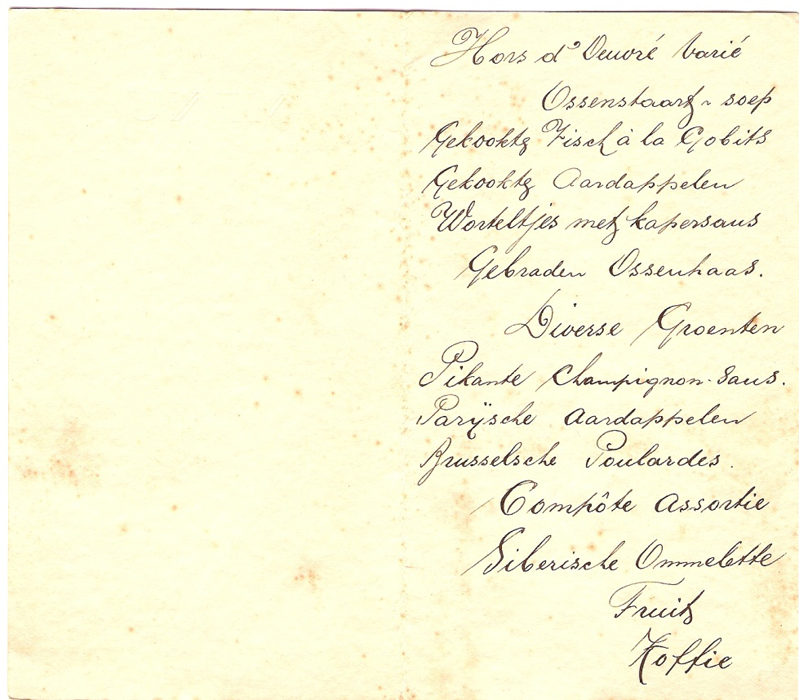 Hors d'Oeuvré Varié
Ossenstaart-soep
Gekookte Fisch à la Gobits
Gekookte Aardappelen
Worteltjes met kapersaus
Gebraden Ossenhaas.
Diverse Groenten
Pikante Champignon-Saus.
Parijsche Aardappelen
Brusselsche Poulardes.
Compôte Assortie
Siberische Ommelette
Fruit
Koffie